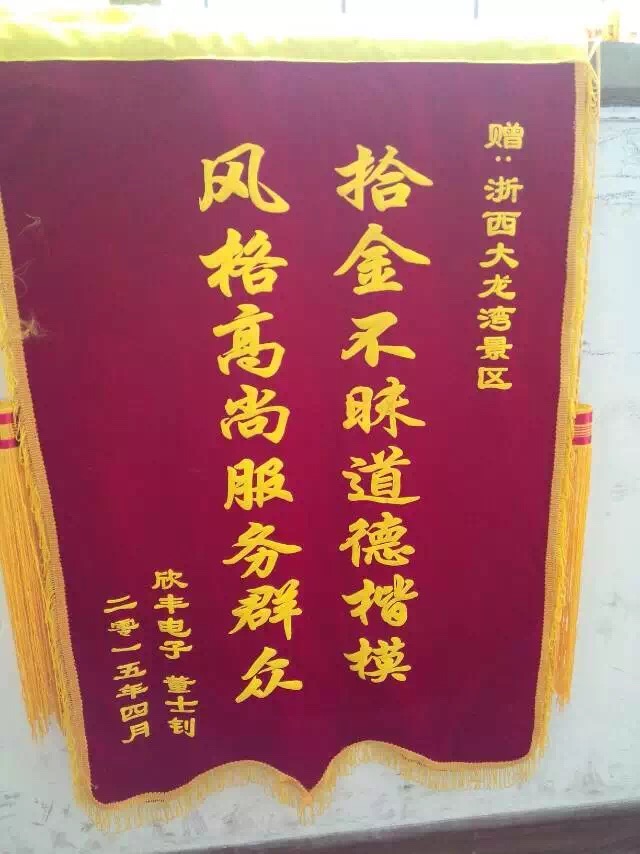 赠:浙西大龙湾景区
拾金不昧道德楷模
风格高尚服务群众
欣丰电子 董士钊
二零一五年四月